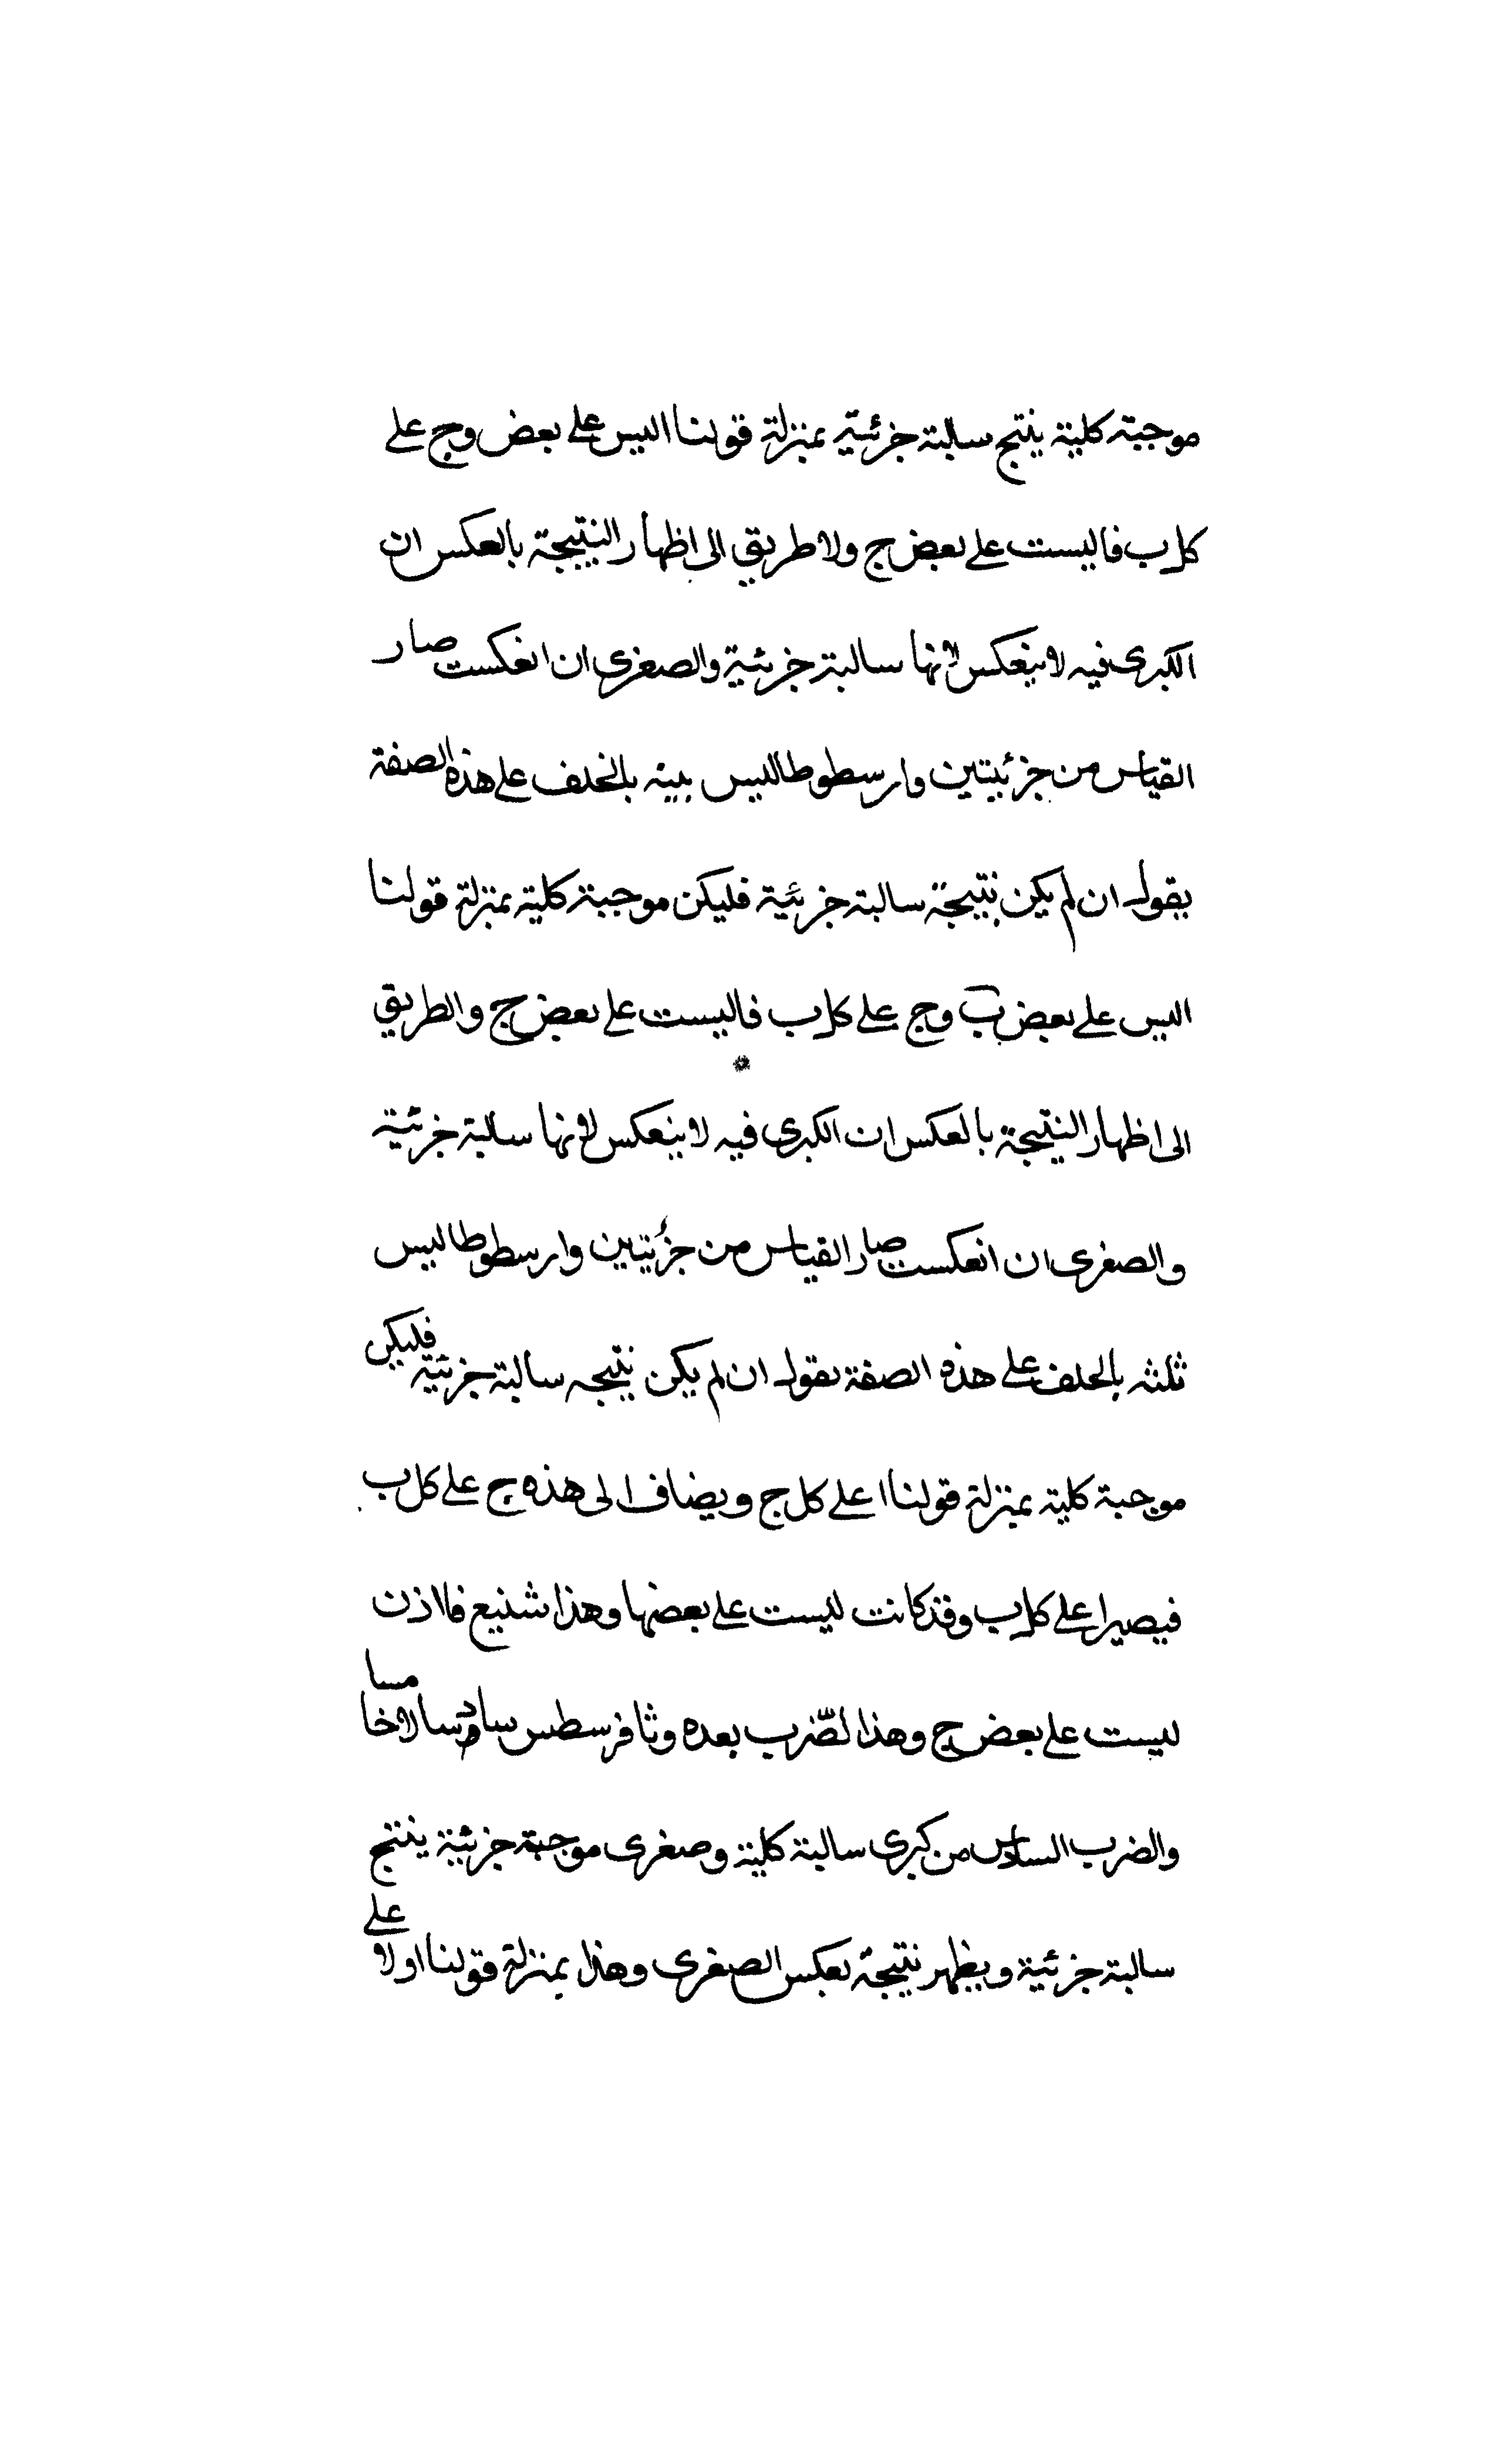 موجبة كلية ينتج سالبة جزئية بمنزلة قولنا اليس على بعض وج على
كل ب فاليست على بعض ج ولا طريق الى اظهار النتيجة بالعكس ان
الكبرى فيه لا ينعكس لانها سالبة جزيئية والصغرى ان انعكست صار
القياس من جزئيتين وارسطوطاليس بينه بالخلف على هذه الصفة
يقول ان لم يكن نتيجة سالبة جزئية فليكن موجبة كلية بمنزلة قولنا
اليس على بعض ب وج على كل ب فاليست على بعض ج والطريق
الى اظهار النتيجة بالعكس ان الكبرى فيه لا ينعكس لانها سالبة جزئية
والصغرى ان انعكست صار القياس من جزئيتين وارسطوطاليس
ثلثه بالخلف على هذه الصفة بقول ان لم يكن نتيجه سالبة جزئية فليكن
موجبة كلية بمنزلة قولنا ا على كل ج ويضاف الى هذه ج على كل ب
فيصير ا على كل ب وقد كانت ليست على بعضها وهذا شنيع فا اذن
ليست على بعض ج وهذا لضّرب بعده وثافرسطس سادسا لا خامسا
والضرب السادس من كبرى سالبة كلية وصغرى موجبة جزئية ينتج
سالبة جزئية ويظهر نتيجة بعكس الصغرى وهذا بمنزلة قولنا ا ولا على